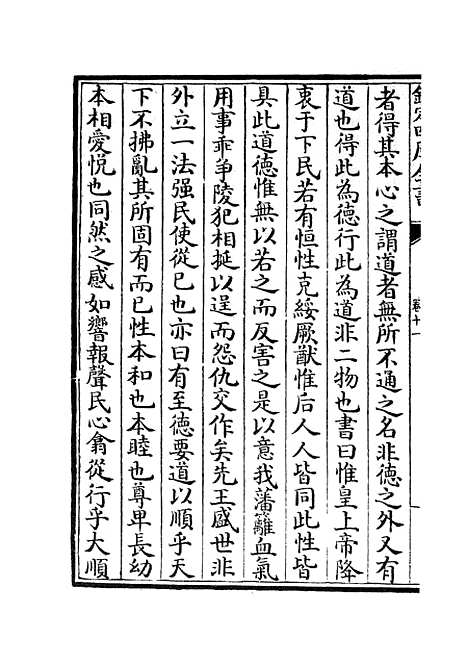 者得其本心之謂道者無所不通之名非德之外又有
道也得此為德行此為道非二物也書曰惟皇上帝降
衷于下民若有恒性克綏厥猷惟后人人皆同此性皆
具此道德惟無以若之而反害之是以意我藩籬血氣
用事乖爭陵犯相挻以逞而怨仇交作矣先王盛世非
外立一法强民使從已也亦曰有至德要道以順乎天
下不拂亂其所固有而已性本和也本睦也尊卑長幼
本相愛悅也同然之感如響報聲民心翕從行乎大順